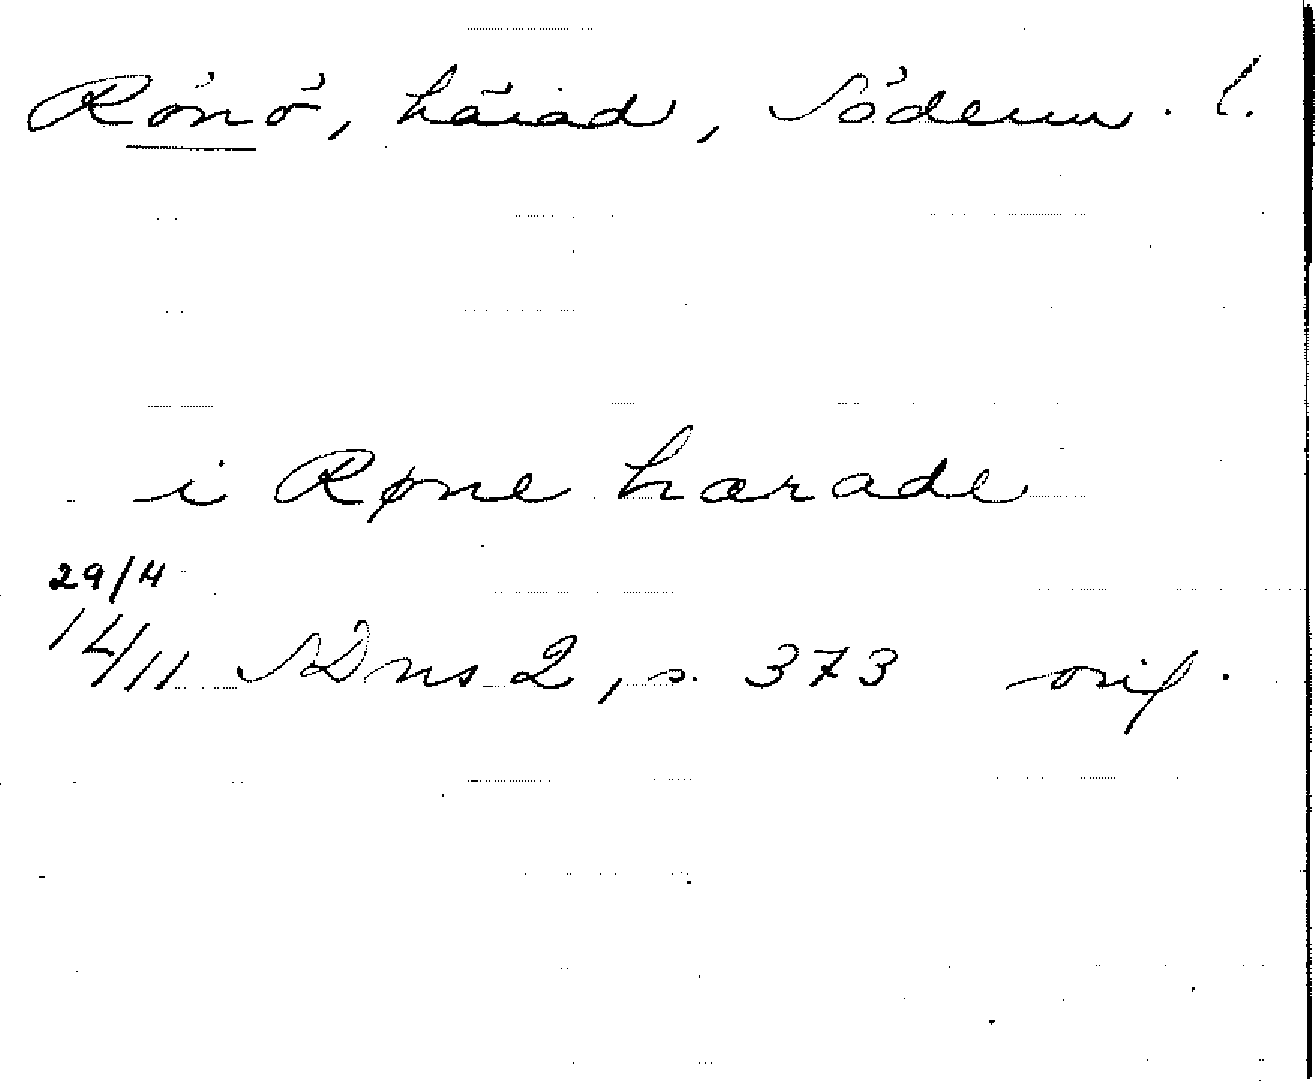 Rönö, härad, Söderm. l.
i Røne hærade
29/4
14/11 SDns 2, s. 373 orig.